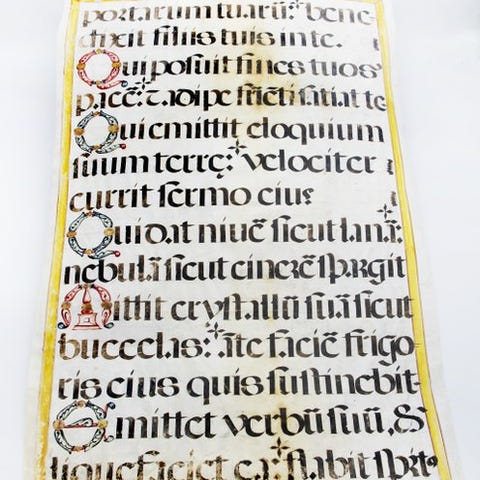 portarum tuarū: bene-
dixit filiis tuis in te.
Qui posuit fines tuos
pacē: & adipe frūcti satiat te
Qui emittit eloquium
suum terrę: velociter
currit sermo eius
Qui dat nivē sicut lanā:
nebulā sicut cinerē spargit
Mittit crystallū suā sicut
buccelas: ātc faciē frigo-
ris eius quis sustinebit-
Emittet verbū suū, &
liquefaciet ea: flabit sprt9